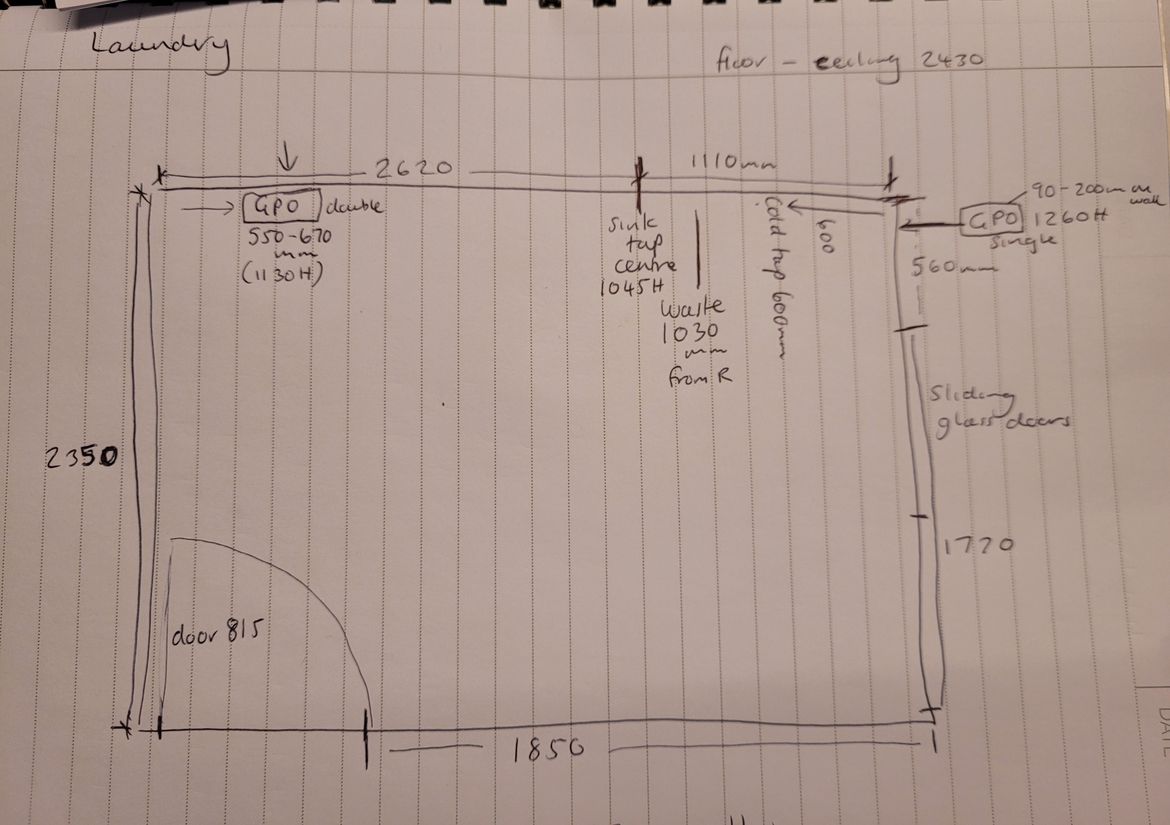 Laundry
floor - ceiling 2430
2620
1110mm
GPO double
550-670
mm
(1130H)
sink
tap
centre
1045H
waste
1030
mm
from R
Cold tap 600mm
600
90-200mm on
wall
GPO 1260H
single
560mm
Sliding
glass doors
2350
1770
door 815
1850
DATE